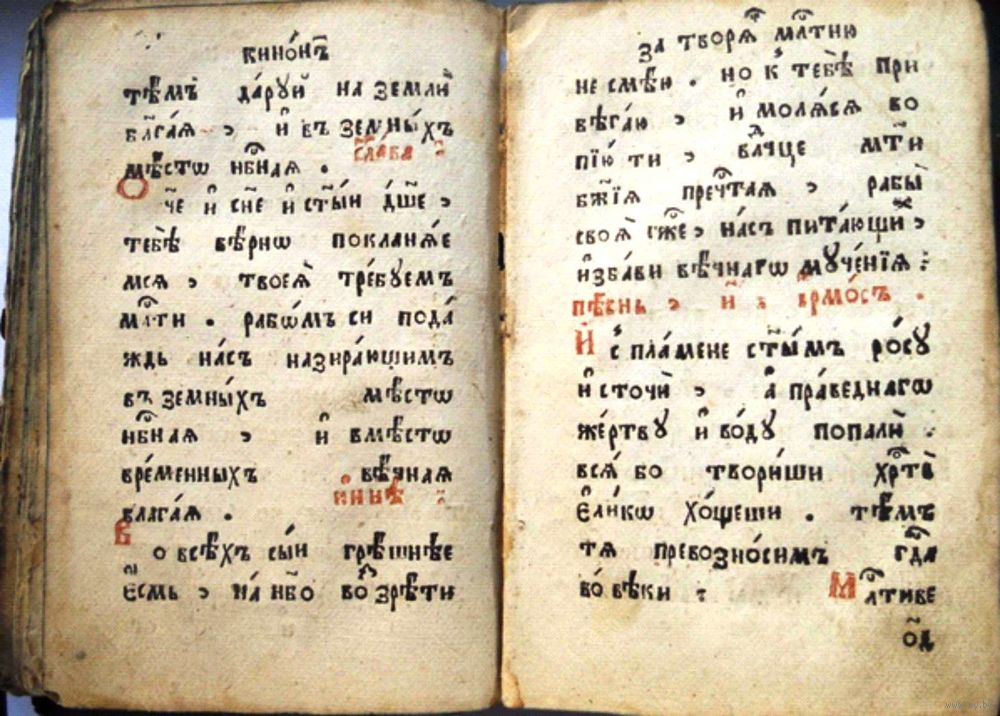 кино́нъ
тѣ́мъ да́руй на землѝ
бл҃га́ѧ , и҆ въ земны́хъ
мѣ́стѡ нб҃наѧ .
сла́ва :
Ѻ҆ч҃е и҆ сн҃е и҆ ст҃ы́й дш҃е ,
тебѣ̀ вѣ́рнѡ покланѧ́е
мсѧ , твоеѧ̀ тре́буемъ
млⷭ҇ти . рабѡ́мъ си пода́
ждь на́съ назира́ющимъ
въ земны́хъ мѣ́стѡ
нбⷭ҇наѧ , и҆ вмѣ́стѡ
вре́менныхъ вѣ́чнаѧ
благаѧ .
и҆ ны́нѣ :
Во всѣ́хъ сы́й грѣ́шнѣе
є҆́смь , на́ нб҃о возрѣ́ти
за творѧ̀ млⷭ҇тню
не смѣ́ю . но к̾ тебѣ̀ при
бѣга́ю , и҆ молѧ́сѧ во
пїю́ ти , влⷣчце мт҃и
бж҃їѧ пречⷭ҇таѧ , рабы̀
своѧ̀ ꙗ҆̀же , на́съ пита́ющиⷯ ,
и҆зба́ви вѣ́чнагѡ муче́нїѧ :
пѣ́снь , и҃ : і҆рмо́съ .
И҆с̾ пла́мене ст҃ы́мъ ро́су
и҆сточѝ , а҆ пра́веднагѡ
же́ртву и҆ во́ду попалѝ .
всѧ́ бо твори́ши хрⷭ҇тѐ
є҆ли́кѡ хо́щеши . тѣ́мъ
тѧ превозно́симъ гдⷭ҇а
во́ вѣки :
Млⷭ҇тиве
о҃д